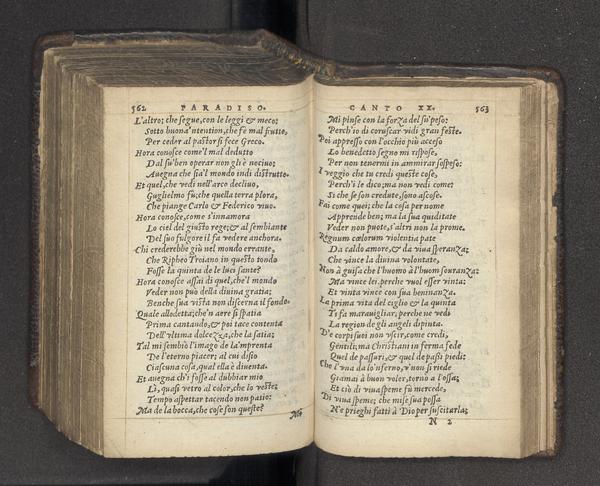 562 PARADISO.
L'altro; che segue, con le leggi & meco;
Sotto buona 'ntention, che fè mal frutto,
Per ceder al pastor si fece Greco.
Hora conosce come'l mal dedutto
Dal su' ben operar non gli è nociuo;
Auegna che sia'l mondo indi distrutto.
Et quel, che vedi nell'arco decliuo,
Guglielmo fù; che quella terra plora,
Che piange Carlo & Federico viuo.
Hora conosce, come s'innamora
Lo ciel del giusto rege; & al sembiante
Del suo fulgore il fa vedere anchora.
Chi crederebbe giù nel mondo errante,
Che Ripheo Troiano in questo tondo
Fosse la quinta de le luci sante?
Hora conosce assai di quel, che'l mondo
Veder non può della diuina gratia;
Benche sua vista non discerna il fondo.
Quale allodetta; che'n aere si spatia
Prima cantando, & poi tace contenta
Dell'vltima dolcezza, che la satia;
Tal mi sembiò l'imago de la 'mprenta
De l'eterno piacer; al cui disio
Ciascuna cosa, qual ella è diuenta.
Et auegna ch'i fosse al dubbiar mio
Lì, quasi vetro al color, che lo veste;
Tempo aspettar tacendo non patio:
Ma de la bocca, che cose son queste?
CANTO XX. 563
Mi pinse con la forza del su' peso:
Perch'io di coruscar vidi gran feste.
Poi appresso con l'occhio più acceso
Lo benedetto segno mi rispose,
Per non tenermi in ammirar sospeso:
I veggio che tu credi queste cose,
Perch'i le dico; ma non vedi come:
Sì che se son credute, sono ascose.
Fai come quei; che la cosa per nome
Apprende ben; ma la sua quiditate
Veder non puote, s'altri non la prome.
Regnum coelorum violentia pate
Da caldo amore, & da viua speranza;
Che vince la diuina volontate,
Non à guisa che l'huomo à l'huom souranza;
Ma vince lei, perche vuol esser vinta:
Et vinta vince con sua beninanza.
La prima vita del ciglio & la quinta
Ti fa marauigliar; perche ne vedi
La region de gli angeli dipinta.
D'e corpi suoi non vscir, come credi,
Gentili; ma Christiani in ferma fede
Quel de passuri, & quel de passi piedi:
Che l'vna da lo'nferno, v' non si riede
Giamai à buon voler, tornò a l'ossa;
Et ciò di viua speme fù mercede,
Di viua speme; che mise sua possa
N'e prieghi fatti à Dio per suscitarla;
N 2